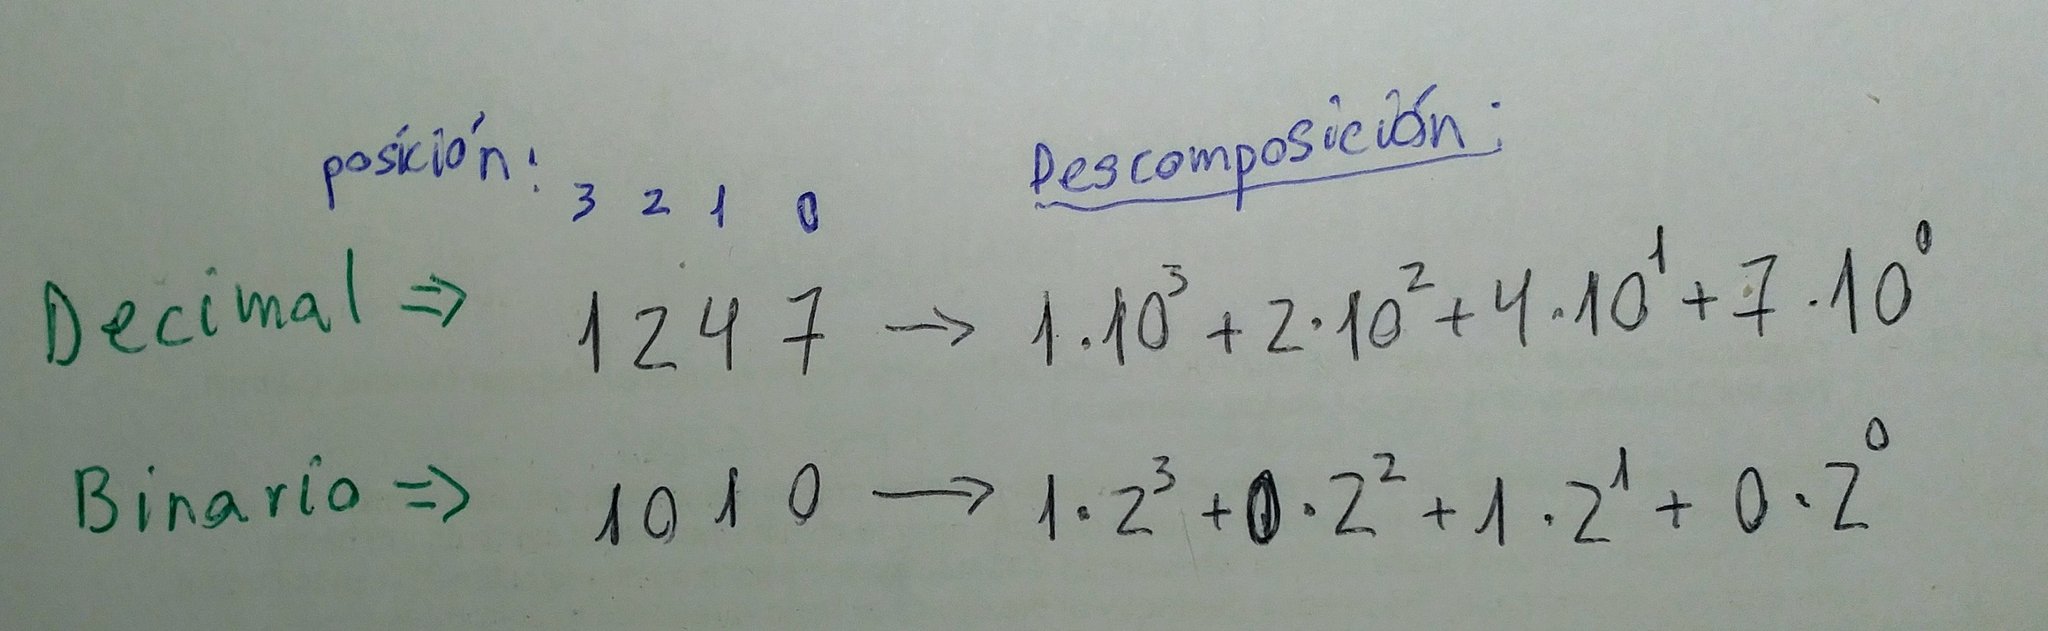 posición: Descomposición:
3 2 1 0
Decimal ⇒ 1 2 4 7 → 1·10³ + 2·10² + 4·10¹ + 7·10⁰
Binario ⇒ 1 0 1 0 → 1·2³ + 0·2² + 1·2¹ + 0·2⁰